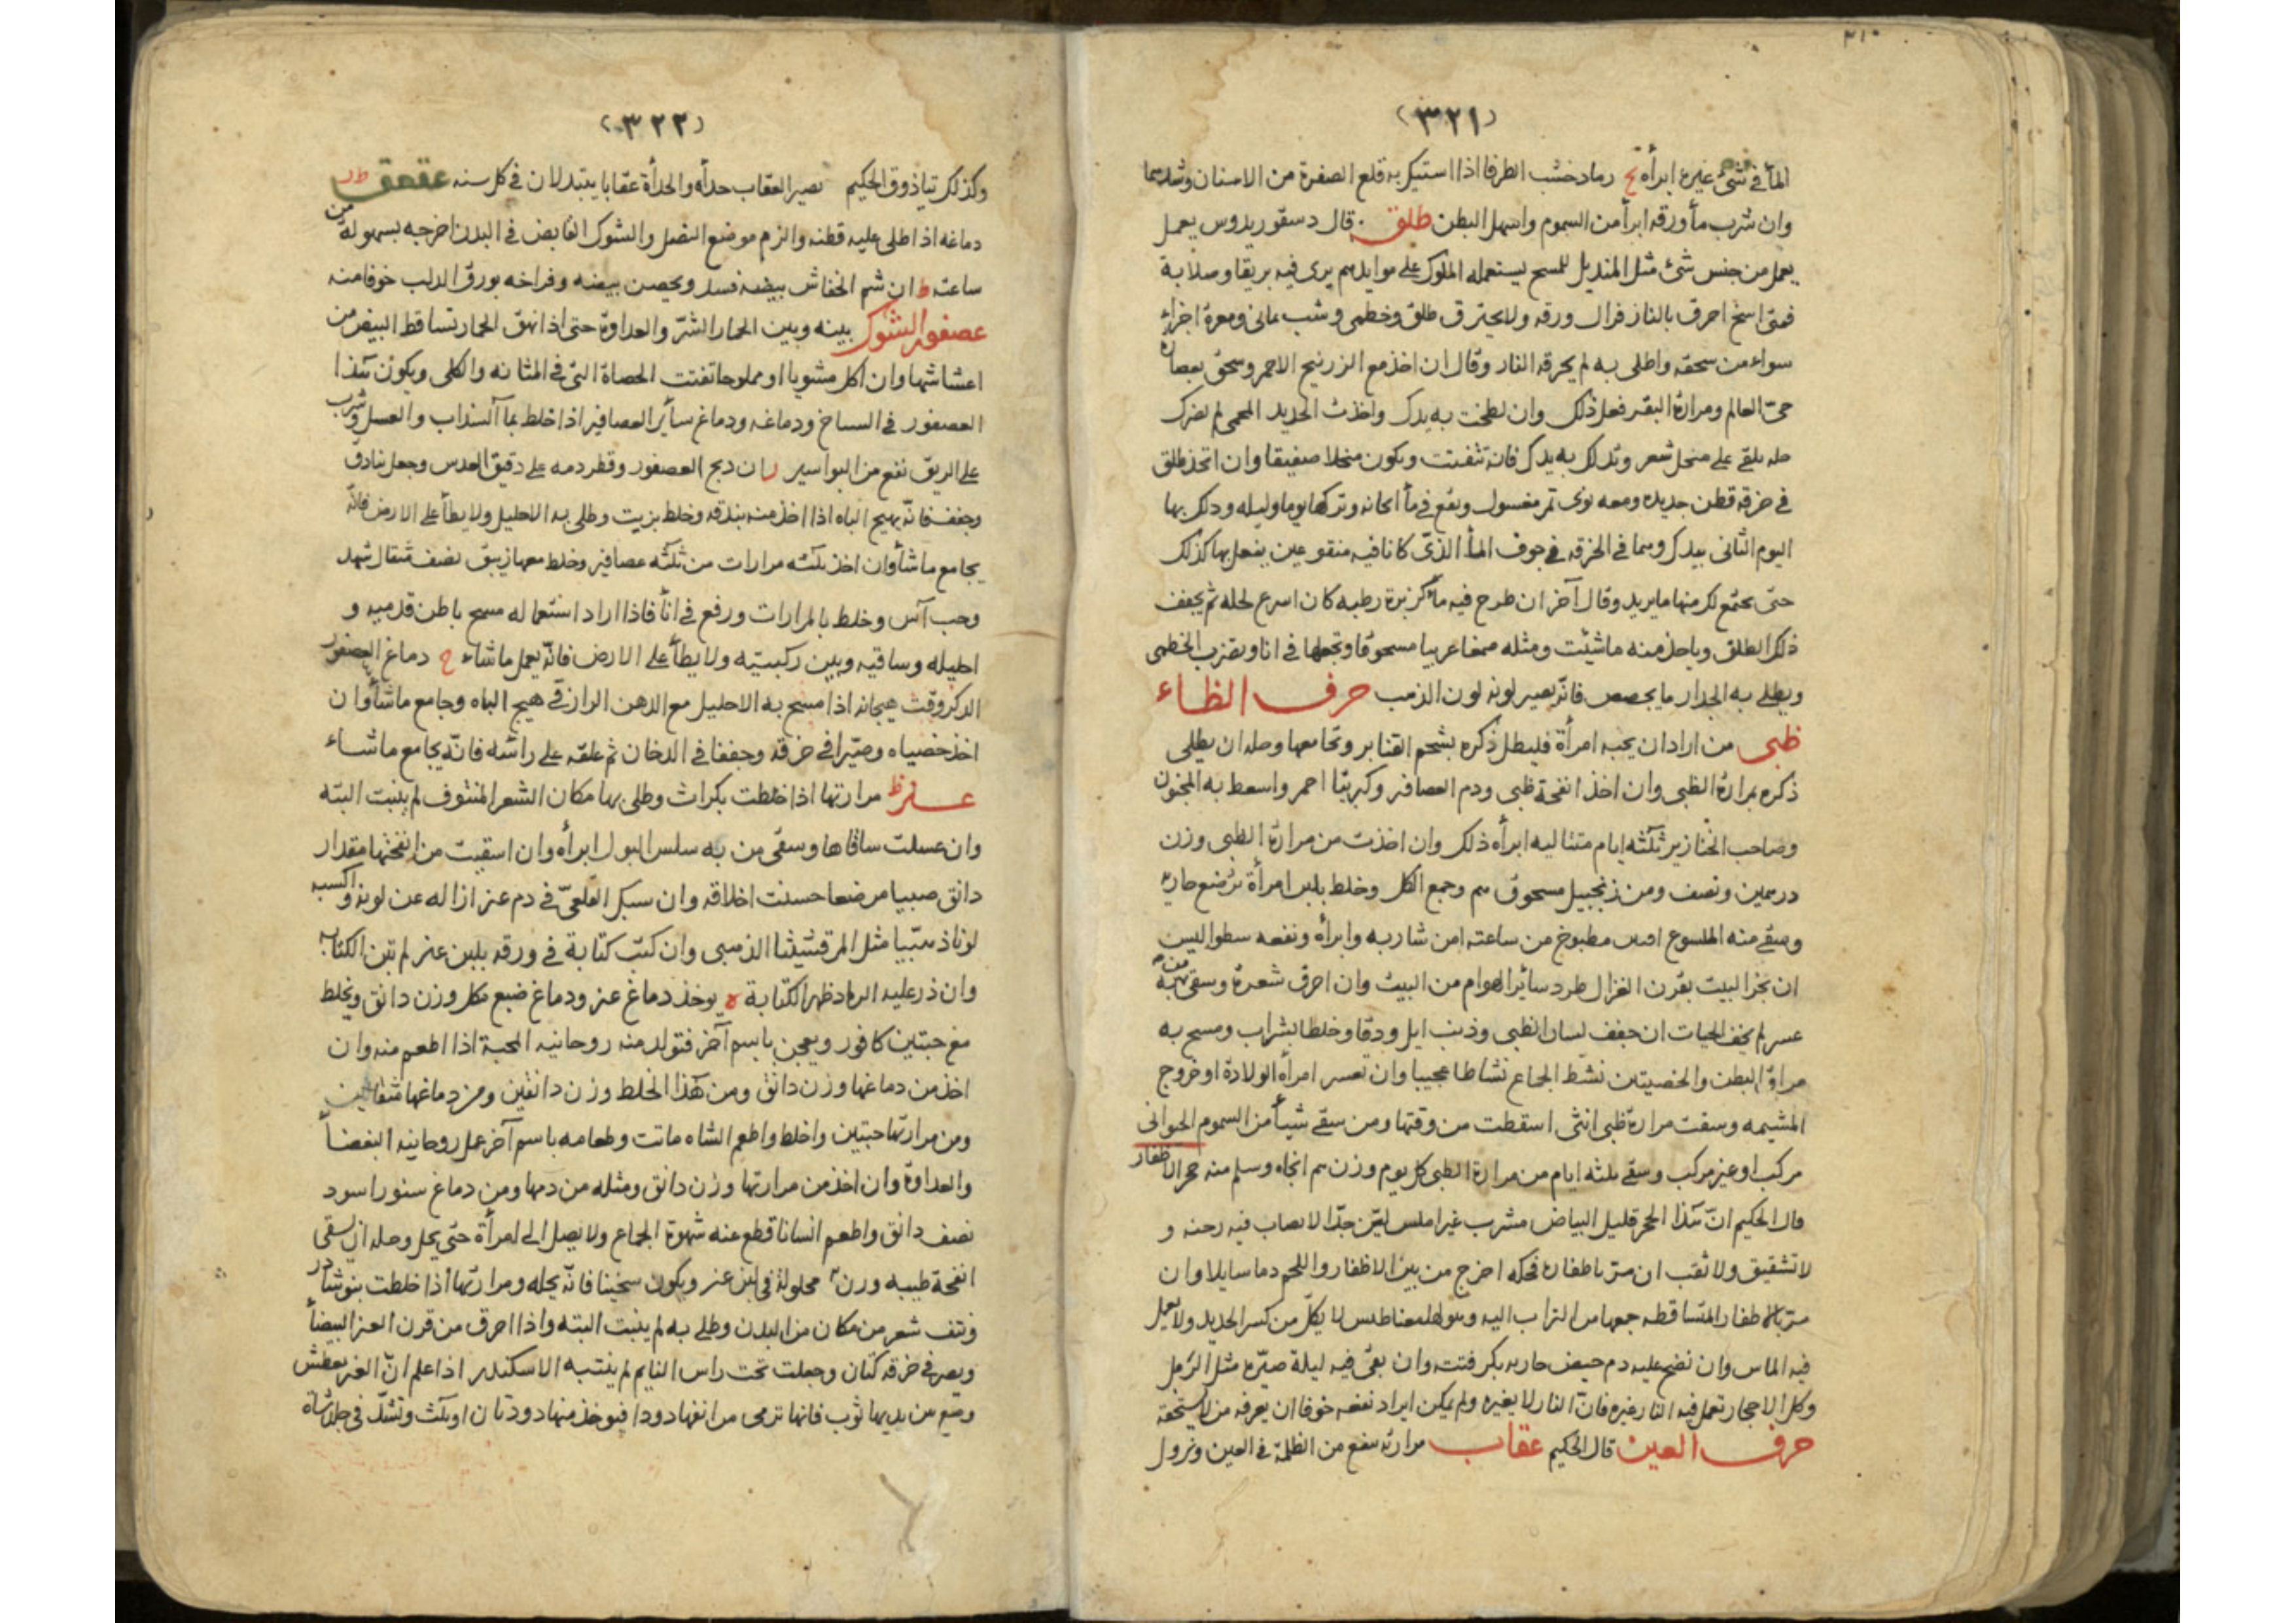 ٢١٠
(٣٢١)
الماء في شئ غيره ابرأه رماد خشب الطرفا اذا استيك به قلع الصفرة من الاسنان وشدها
وان شرب ماء ورقه ابرأ من السموم واسهل البطن طلق قال دسقوريدوس يعمل
يعمل من جنس شئ مثل المنديل للمسح يستعمله الملوك على موايدهم يرى فيه بريقا وصلابة
فمتى اتسخ احرق بالنار فزال ورقه ولا يحترق طلق وخطمى وشب يمانى ومغرة اجزاء
سواء من سحقه واطلى به لم يحرقه النار وقال ان اخذ مع الزرنيخ الاحمر وسحق بعصارة
حى العالم ومرارة البقر فعل ذلك وان لطخت به يدك واخذت الحديد المحمى لم يضرك
حله يلقى على منخل شعر وتدلك به يدك فانه تتفتت ويكون منخلا صفيقا وان اتخذ طلق
في خرقة قطن جديده ومعه نوى تمر مغسول ونقع في ماء وتركها يوما وليله ودلك بها
اليوم الثانى بيدك وهما في الخرقه في جوف الماء الذى كانا فيه منقوعين يفعل بها كذلك
حتى يجتمع لك منها ما يريد وقال آخر ان طرح فيه ماء كزبرة رطبه كان اسرع لحله ثم يجفف
ذلك الطلق وياخذ منه ما شئت ومثله صمغا عربيا مسحوقا وتجعلها في انا ويضرب الخطمى
ويطلى به الجدار ما يجصص فانّه يصير لونه لون الذهب حرف الظاء
ظبى من اراد ان يحبه امرأة فليطل ذكره بشحم القنابر وتجامعها وحله ان يطلى
ذكره بمرارة الظبى وان اخذ انفحة ظبى ودم العصافر وكبريتا احمر واسعط به المجنون
وصاحب الخنازير ثلثه ايام متتاليه ابرأه ذلك وان اخذت من مرارة الظبى وزن
درهمين ونصف ومن زنجبيل مسحوق وجمع الكل وخلط بلبن امرأة ترضع جاريه
وسقى منه الملسوع مطبوخ من ساعته امن شاربه وابرأه ونفعه
ان بخر البيت بقرن الغزال طرد سائر الهوام من البيت وان احرق شعره وسقى منه
عسر لم يخف الحيات ان جفف لسان الظبى وذنب ايل ودقا وخلطا بشراب ومسح به
مراق البطن والخصيتين نشط الجماع نشاطا عجيبا وان تعسر امرأة الولادة او خروج
المشيمه وسقت مرارة ظبى انثى اسقطت من وقتها ومن سقى شيأ من السموم الحوانى
مركب او غير مركب وسقى ثلثه ايام من مرارة الظبى كل يوم وزن انجاه وسلم منه حجر الاظفار
قال الحكيم انّ هذا الحجر قليل البياض مشرب غير املس ليّن جدّا لا يصاب فيه رحنه و
لا تشقيق ولا ثقب ان مرّ باظفاره فحكه اخرج من بين الاظفار واللحم دما سايلا وان
مرّ بالاظفار المتساقطه جمعها من التراب اليه لا يكلّ من كسر الحديد ولا يعمل
فيه الماس وان نضح عليه دم حيض جاريه بكر فتته وان بقى فيه ليلة صيّره مثل الرمل
وكل الاحجار تعمل فيه النار غيره فانّ النار لا يغيره ولم يمكن ايراد نفعه خوفا ان يعرفه من لا يستحقه
حرف العين قال الحكيم عقاب مرارته ينفع من الظلمة في العين ونزول
(٣٢٢)
وكذلك تياذوق الحكيم يصير العقاب حدأه والحدأة عقابا يتبدلان في كل سنه عقعق
دماغه اذا اطلى عليه قطنه والزم موضع النصل والشوك الغايض في البدن اخرجه بسهولة من
ساعته ان شم الخفاش بيضه فسد ويحصن بيضه وفراخه بورق الدلب خوفا منه
عصفور الشوك بينه وبين الحمار الشرّ والعداوة حتى اذا نهق الحمار تساقط البيض من
اعشاشها وان اكل مشويا او مملوحا تفتت الحصاة التى في المثانه والكلى ويكون هذا
العصفور في السباخ ودماغه ودماغ سائر العصافير اذا خلط بماء السذاب والعسل وشرب
على الريق نفع من البواسير ان ذبح العصفور وقطر دمه على دقيق العدس وجعل بنادق
وجفف فانّه يهيج الباه اذا اخذ منه بندقه وخلط بزيت وطلى به الاحليل ولا يطأ على الارض فانّه
يجامع ما شاء وان اخذ ثلثه مرارات من ثلثه عصافير وخلط معها زيبق نصف مثقال شهد
وحب آس وخلط بالمرارات ورفع في اناء فاذا اراد استعماله مسح باطن قدميه و
احليله وساقيه وبين ركبتيه ولا يطأ على الارض فانّه يعمل ما شاء دماغ العصفور
الذكر وقت هيجانه اذا مسح به الاحليل مع الدهن الرازقى هيج الباه وجامع ما شاء وان
اخذ خصياه وصيّرا في خرقة وجففا في الدخان ثم علقه على راسه فانّه يجامع ما شاء
عنز مرارتها اذا خلطت بكراث وطلى بها مكان الشعر المنتوف لم ينبت البتّه
وان غسلت ساقاها وسقى من به سلس البول ابرأه وان اسقيت من انفحتها مقدار
دانق صبيا مرضعا حسنت اخلاقه وان سبك القلعىّ في دم عنز ازاله عن لونه واكسبه
لونا ذهبيا مثل المرقشيثا الذهبى وان كتب كتابة في ورقه بلبن عنز لم تبن الكتابه
وان ذر عليه الرماد ظهر الكتابة يوخذ دماغ عنز ودماغ ضبع بكل وزن دانق ويخلط
مع حبتين كافور ويعجن باسم آخر فتولد منه روحانيه المحبة اذا اطعم منه وان
اخذ من دماغها وزن دانق ومن هذا الخلط وزن دانقين ومن دماغها مثقالين
ومن مرارتها حبتين واخلط واطعم الشاه ماتت وطعامه باسم آخر عمل روحانيه البغضاء
والعداوة وان اخذ من مرارتها وزن دانق ومثله من دمها ومن دماغ سنور اسود
نصف دانق واطعم انسانا قطع عنه شهوة الجماع ولا يصل الى امرأة حتى يحل وحله ان يسقى
انفحة ظبيه وزن محلولة في لبن عنز ويكون سخينا فانّه يحله ومرارتها اذا خلطت بنوشادر
ونتف شعر من مكان من البدن وطلى به لم ينبت البته واذا احرق من قرن العنز البيضاء
ويصر في خرقه كتان وجعلت تحت راس النايم لم ينتبه الاسكندر اذا علم انّ العنز يعطش
وضع بين يديها ثوب فانها ترمى من انفها دودا فيوخذ منها دودتان او ثلث وتشدّ في جلد شاة